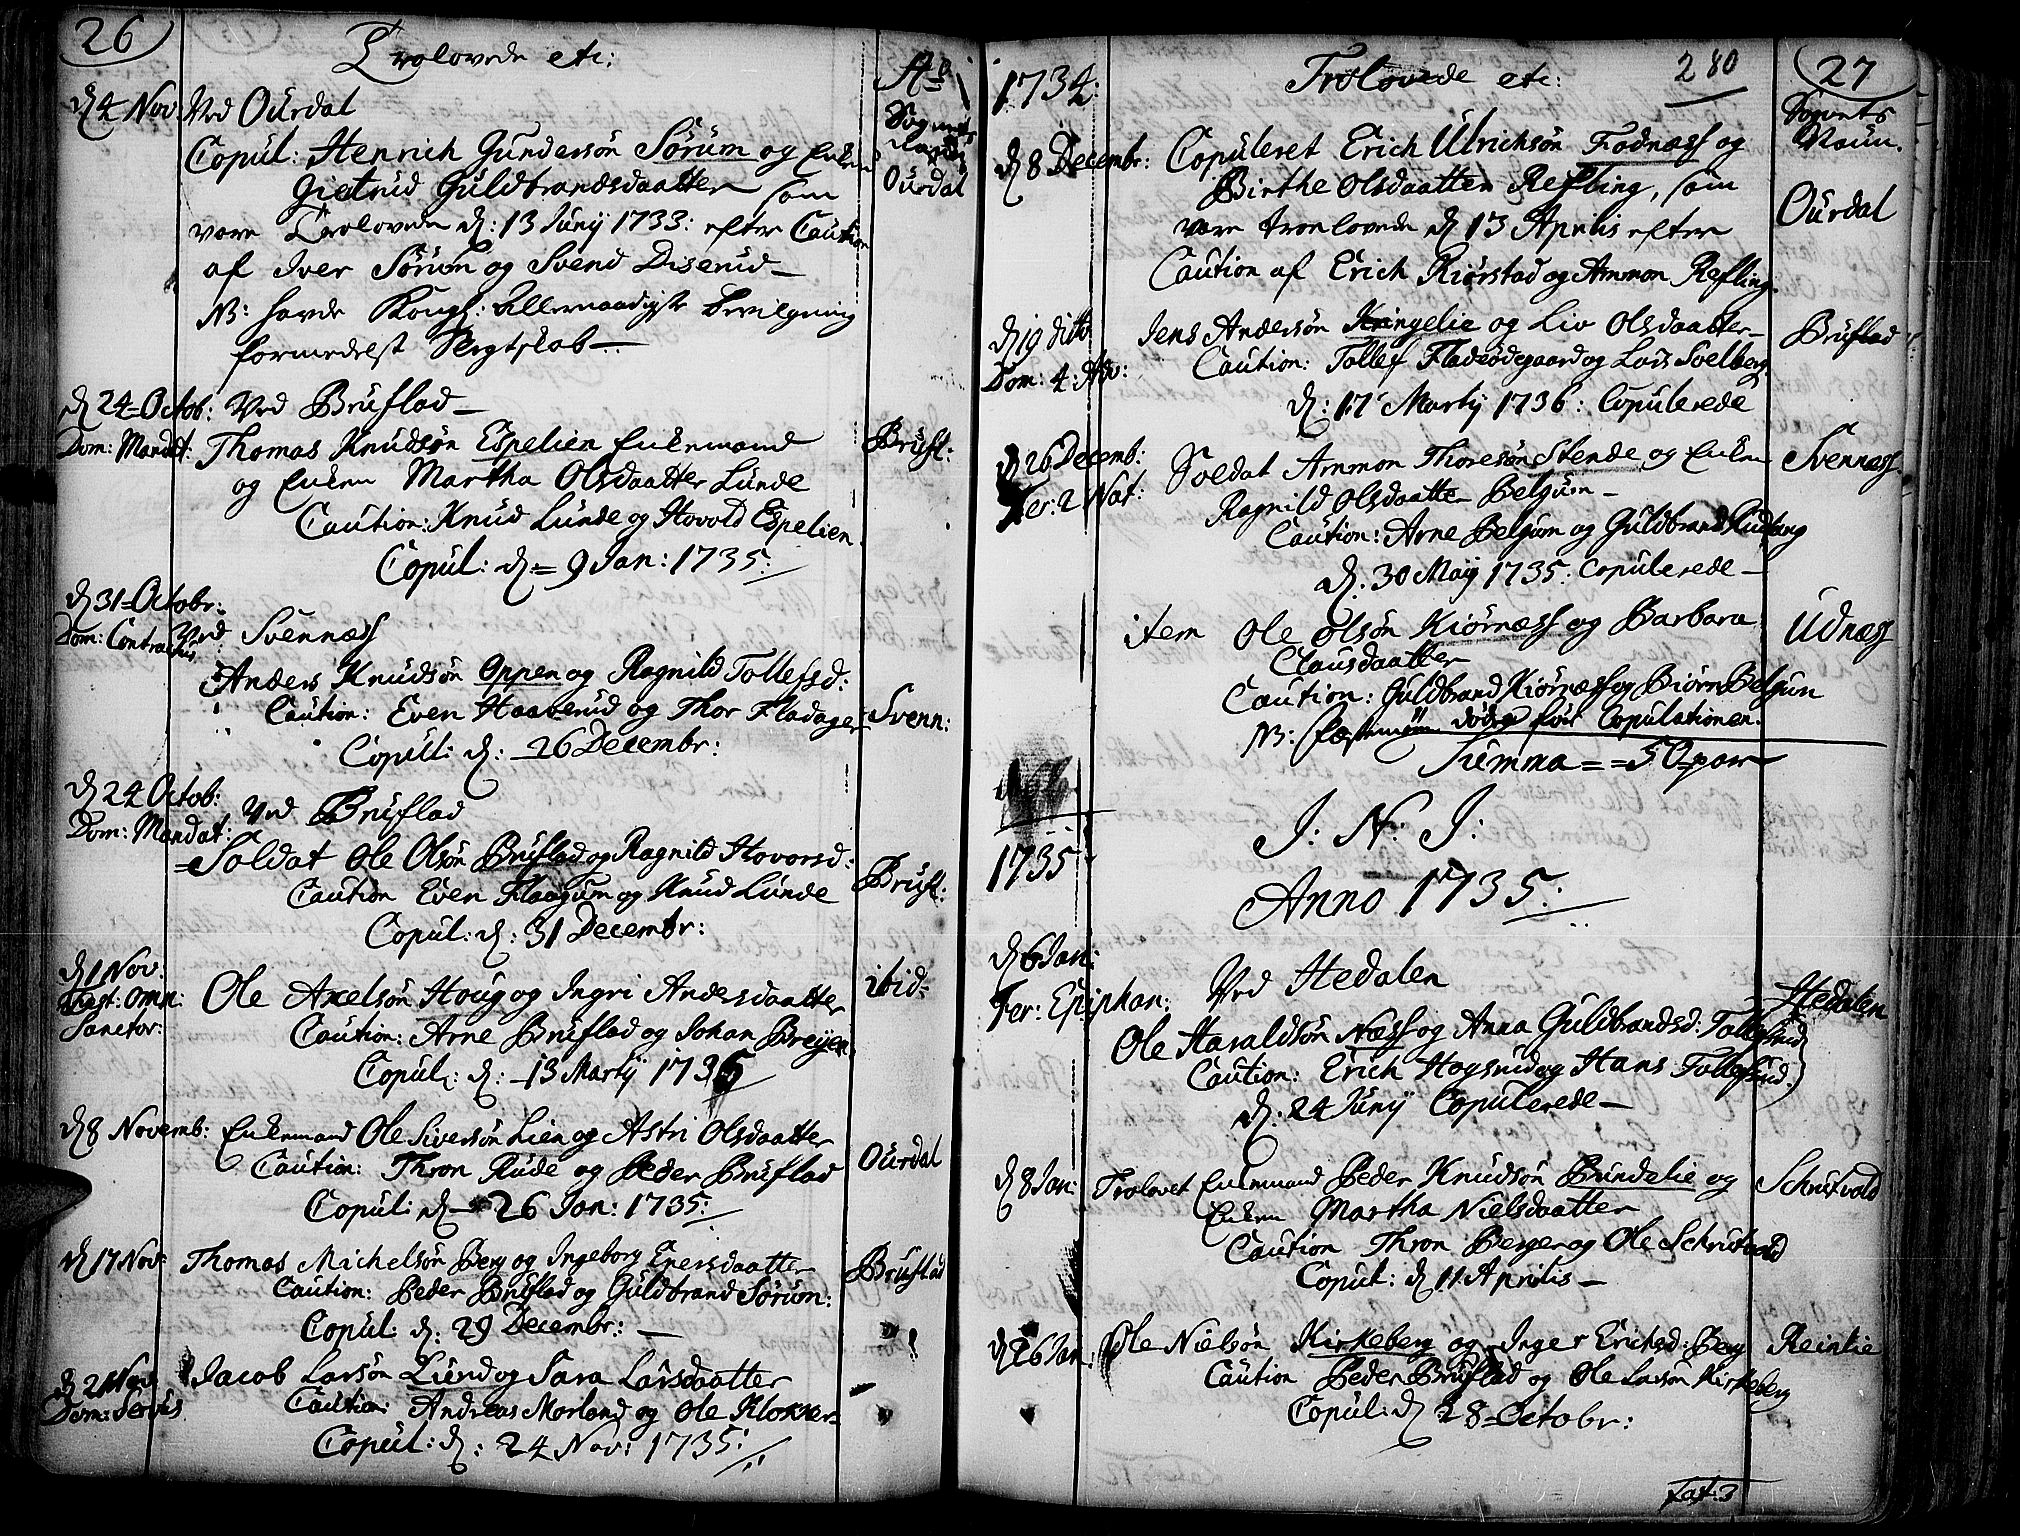 26
Trolovede etc:
Ao
Sognets
Naufn
d 4 Nov. Ved Ourdal
Copul: Henrich Gundersön Sörum og Enken
Ourdal
Gietrud Guldbrandsdaatter som
vare Trolovede d: 13 Junij 1733: efter Caution
af Iver Sörum og Svend Diserud
NB: havde Kongl: allernaadigste bevilgning
formedelst Slegtskab
d 24 Octob: Ved Bruflad
Dom: Mandat: Thomas Knudsön Espelien Enkemand
Brufl:
og Enken Martha Olsdaatter Lunde
Caution: Knud Lunde og Hovold Espelien
Copul: d= 9 Jan: 1735:
d 31 Octobr:
Dom: Ved Svennæss
Anders Knudsön Oppen og Ragnild Tollefsd:
Caution: Even Haaverud og Thor Fladager
Svenn:
Copul: d: 26 Decembr:
d 24 Octob:
Dom: Mandat: Ved Bruflad
Soldat Ole Olsön Bruflad og Ragnild Hovorsd:
Brufl:
Caution Even Flaagum og Knud Lunde
Copul: d: 31 Decembr:
d 1 Nov:
Fest: Omn:
Sanctor:
Ole Axelsön Houg og Ingri Andersdaatter
ibid:
Caution: Arne Bruflad og Johan Breijen
Copul: d: 13 Martij 1736
d 8 Novemb: Enkemand Ole Siversön Lien og Astri Olsdaatter
Ourdal
Caution: Thron Rude og Peder Bruflad
Copul: d 26 Jan: 1735:
d 17 Nov: Thomas Michelsön Berg og Ingeborg Eversdaatter
Bruflad
Caution: Peder Bruflad og Guldbrand Sörum:
Copul: d: 29 Decembr:
d 21 Nov
Jacob Larsön Lund og Sara Larsdaatter
Caution: Andreas Morland og Ole Klokker
Copul: d: 24 Nov: 1735:
1734:
Trolovede etc:
280
27
Sognets
Naun.
d 8 Decembr: Copuleret Erich Ulrichsön Fodnæss og
Birthe Olsdaatter Refling, som
Ourdal
vare troelovede d 13 Aprilis efter
Caution af Erich Kiörstad og Ammon Refling.
d 19 dito
Dom: 4: Adv:
Jens Andersön Kringelie og Liv Olsdaatter
Bruflad
Caution: Tollef Fladeödegaard og Lars Svelberg
d: 17 Martij 1736: Copulerede
d 26 Decemb:
Fer: 2 Nat:
Soldat Ammon Thoresön Stende og Enken
Svennæss
Ragnild Olsdaatter Belgum
Caution: Arne Belgum og Guldbrand Rudberg
d. 30 Maij 1735: Copulerede
item Ole Olsön Kiörnæss og Barbara
Udnæss
Clausdaatter
Caution: Guldbrand Kiörnæss og Biörn Belgum
NB: dödde för Copulationen.
Summa = = 50 par
1735
J: N: J:
Anno 1735:
d 6 Jan:
Fer: Epiphan:
Ved Hedalen
Hedalen
Ole Haraldsön Næss og Anna Guldbrandsd: Tollefsrud
Caution: Erich Hogsrud og Hans Tollefsrud.
d: 24 Junij Copulerede
d 8 Jan: Trolovet Enkemand Peder Knudsön Brundelie og
Schrutvold
Enken Martha Nielsdaatter
Caution Thron Berge og Ole Schrutvold
Copul: d 11 Aprilis
d 26 Jan. Ole Nielsön Kirkeberg og Inger Erichsd: Berg
Reinlie
Caution Peder Bruflad og Ole Larsön Kirkeberg
Copul: d 28 Octobr: